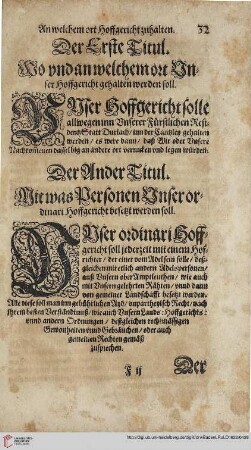 An welchem ort Hoffgericht zuhalten. 32
Der Erste Titul.
Wo vnd an welchem ort Vn-
ser Hoffgericht gehalten werden soll.
VNser Hoffgericht solle
allwegen inn Vnserer Fürstlichen Resi-
dentz Statt Durlach / inn der Cantzley gehalten
werden / es were dann / daß Wir oder Vnsere
Nachkommen dasselbig an andere ort verrucken vnd legen würden.
Der Ander Titul.
Mit was Personen Vnser or-
dinari Hoffgericht besetzt werden soll.
VNser ordinari Hoff-
gericht soll jederzeit mit einem Hof-
richter / der einer vom Adel sein solle / deß-
gleichen mit etlich andern Adelspersonen /
auß Vnsern ober Amptleuthen / Wie auch
mit Vnsern gelehrten Räthen / vnnd dann
von gemeiner Landschafft besetzt werden.
Alle diese soll man inn gebührlichen Ayd / vnpartheyisch Recht / nach
Ihrem besten Verständtnuß / wie auch Vnsern Lands: Hoffgerichts:
vnnd andern Ordnungen / deßgleichen rechtmässigen
Gewonheiten vnnd Gebräuchen / oder auch
gemeinen Rechten gemäß
zusprechen.
F ij Der